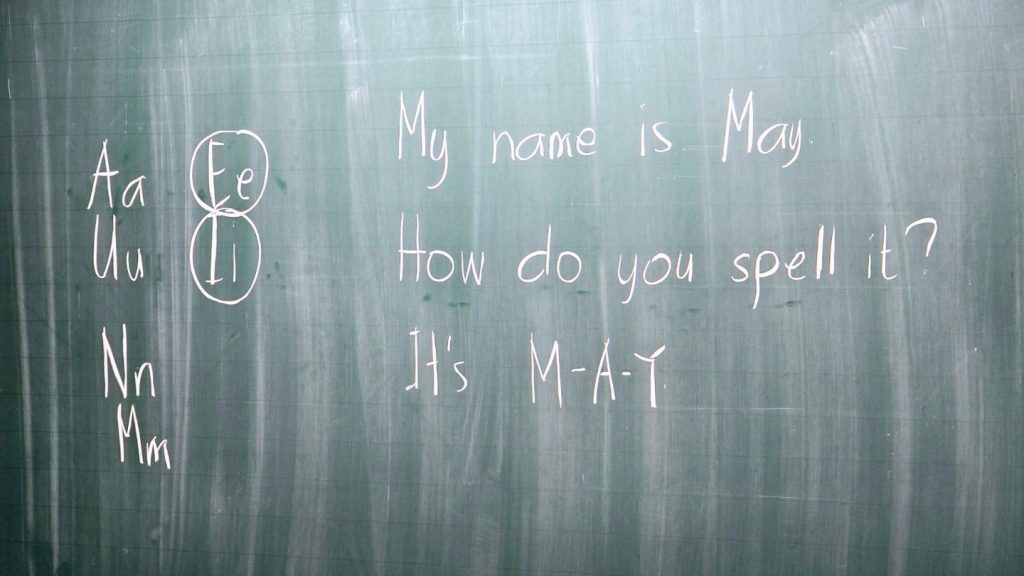 Aa Ee
Uu Ii
Nn
Mm
My name is May.
How do you spell it?
It's M-A-Y.